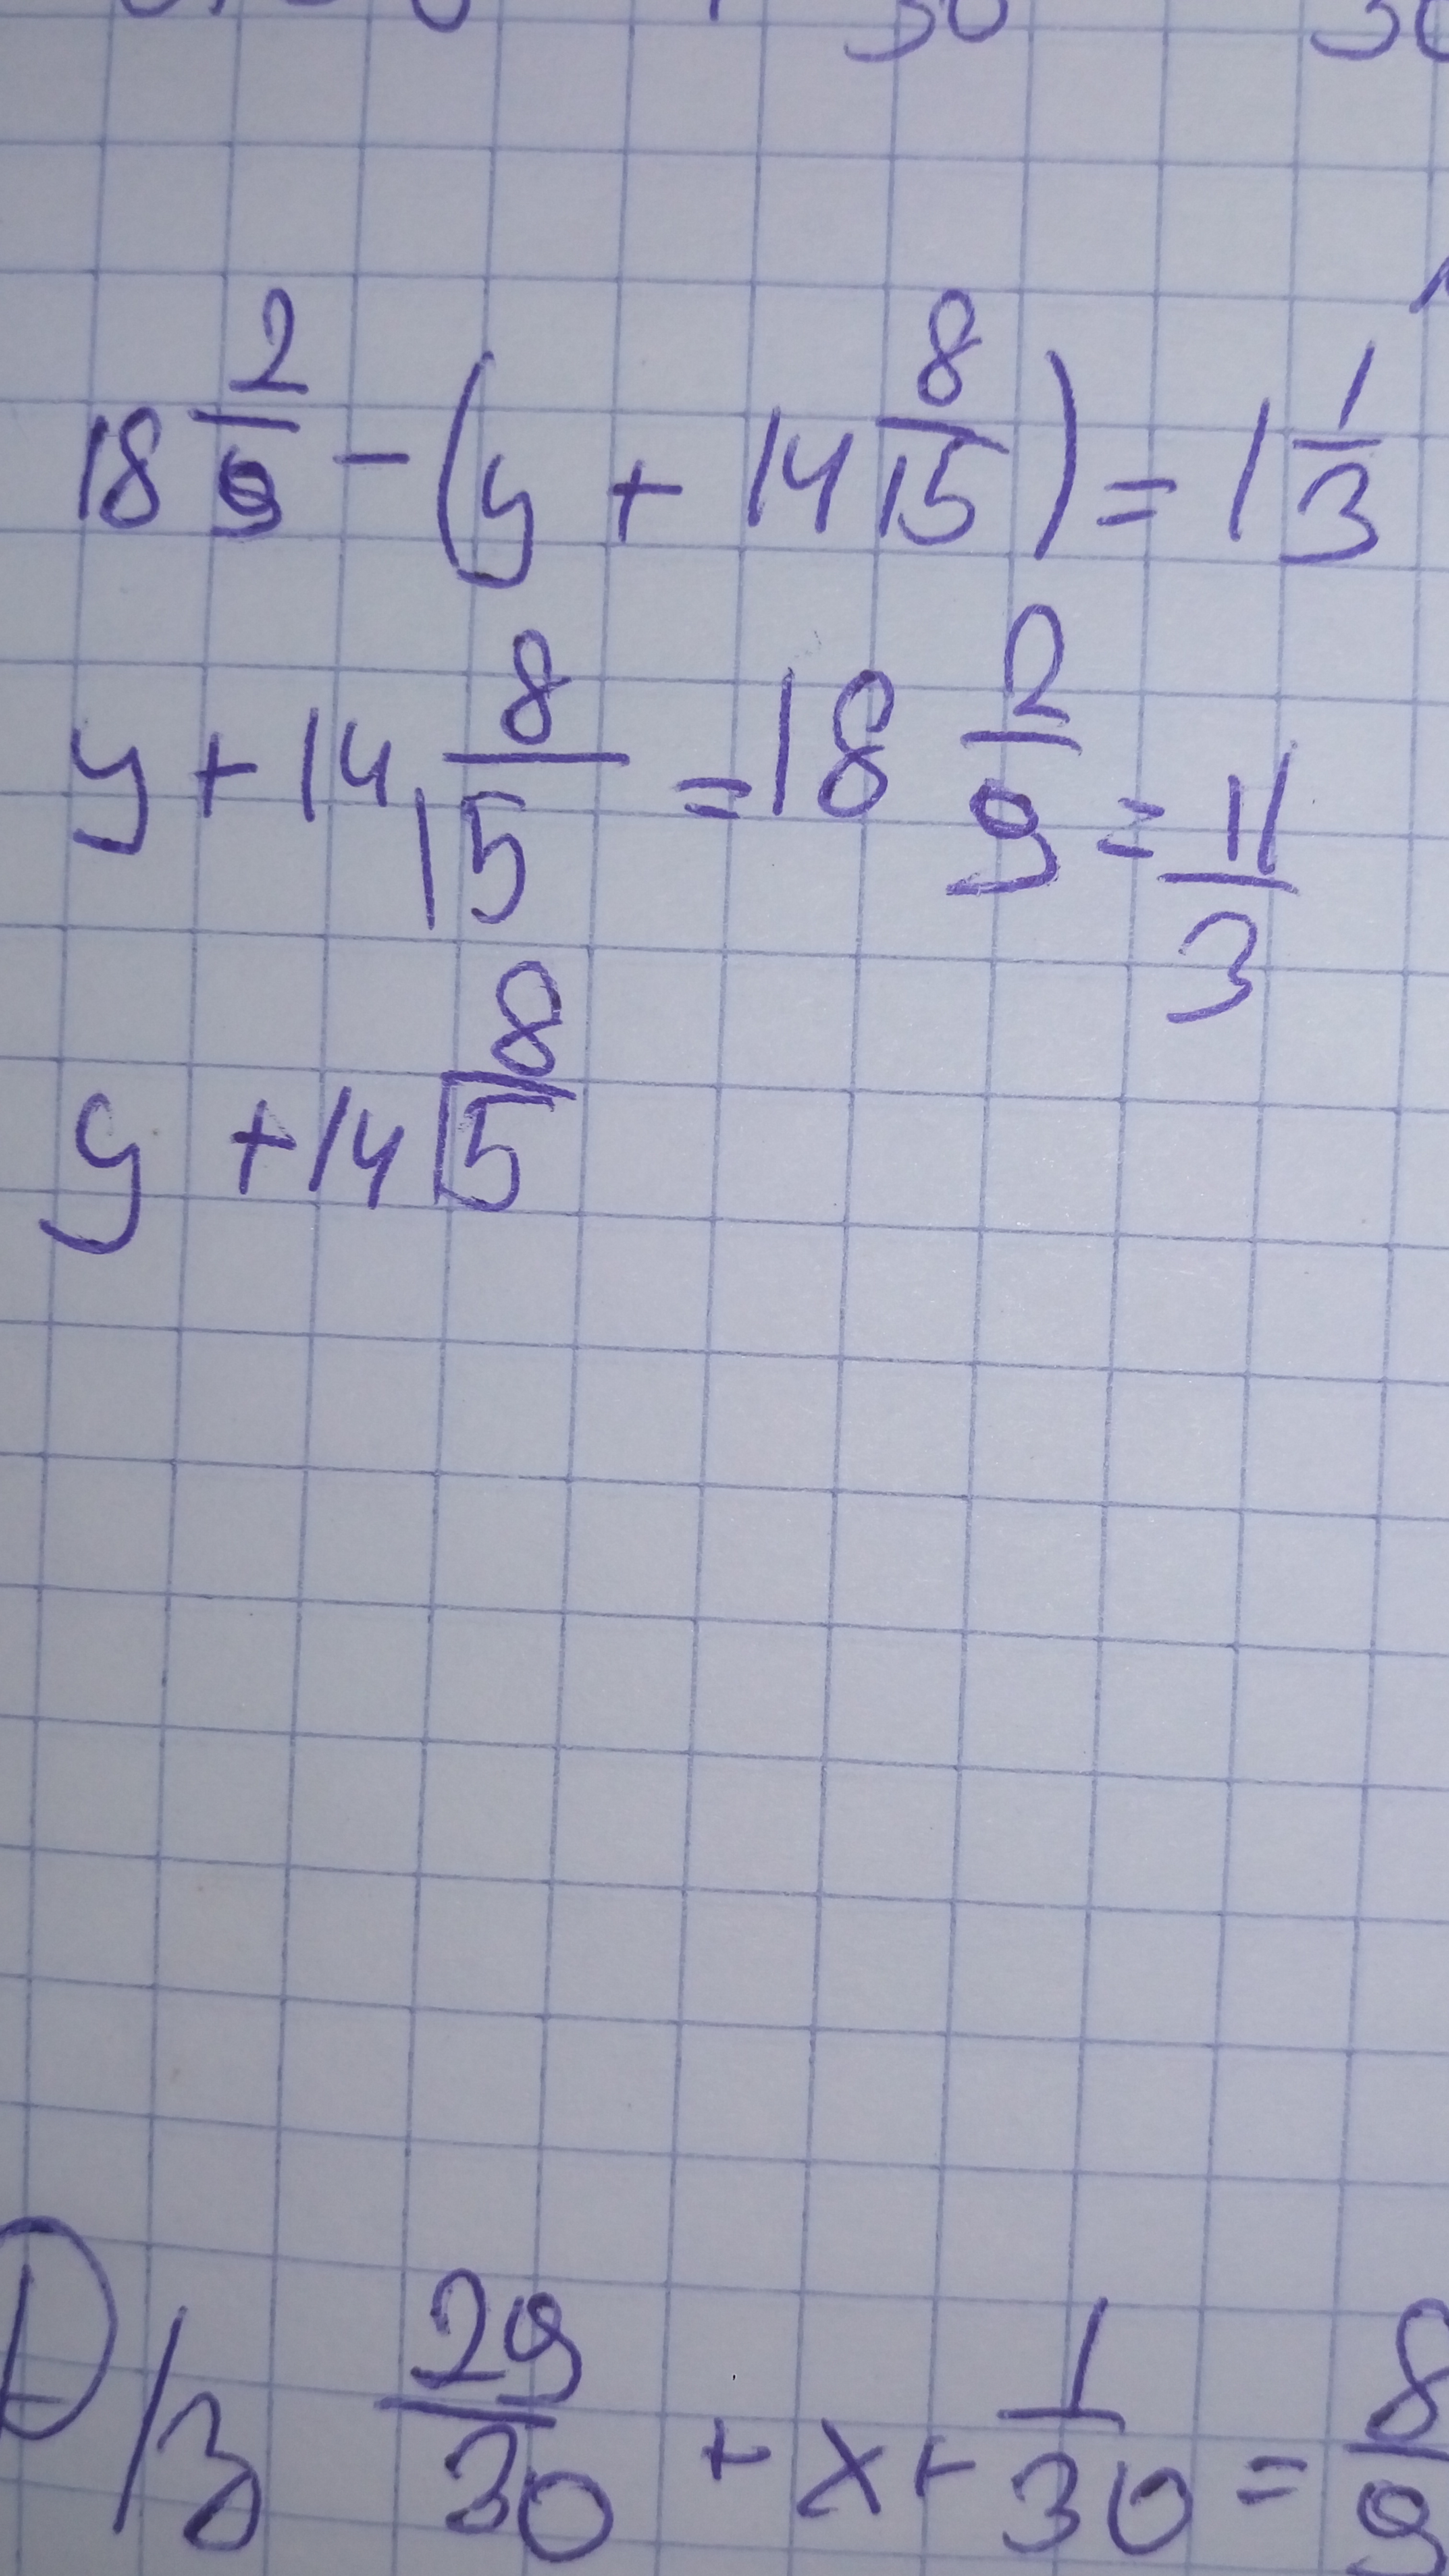 18 2/9 - (y + 14 8/15) = 1 1/3
y + 14 8/15 = 18 2/9 = 11/3
y + 14 8/15
Д/з 29/30 + x + 1/30 = 8/9